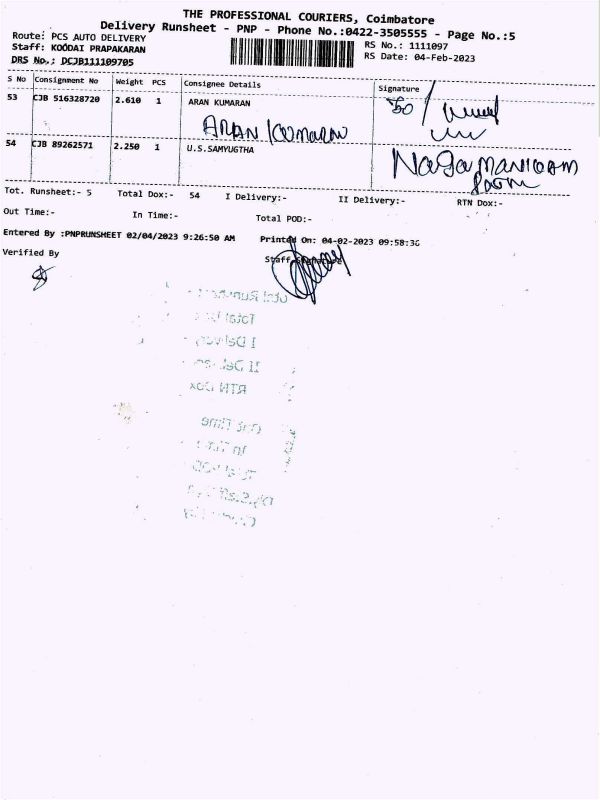 THE PROFESSIONAL COURIERS, Coimbatore
Delivery Runsheet - PNP - Phone No.:0422-3505555 - Page No.:5
Route: PCS AUTO DELIVERY
RS No.: 1111097
Staff: KOODAI PRAPAKARAN
RS Date: 04-Feb-2023
DRS No.: DCJB111109705
S No Consignment No Weight PCS Consignee Details Signature
53 CJB 516328720 2.610 1 ARAN KUMARAN
ARAN KUMARAN
54 CJB 89262571 2.250 1 U.S.SAMYUGTHA
NAGAMANICAM
Tot. Runsheet:- 5 Total Dox:- 54 I Delivery:- II Delivery:- RTN Dox:-
Out Time:- In Time:- Total POD:-
Entered By :PNPRUNSHEET 02/04/2023 9:26:50 AM Printed On: 04-02-2023 09:58:36
Verified By Staff Signature
I Delivery
RTN Dox
Out Time